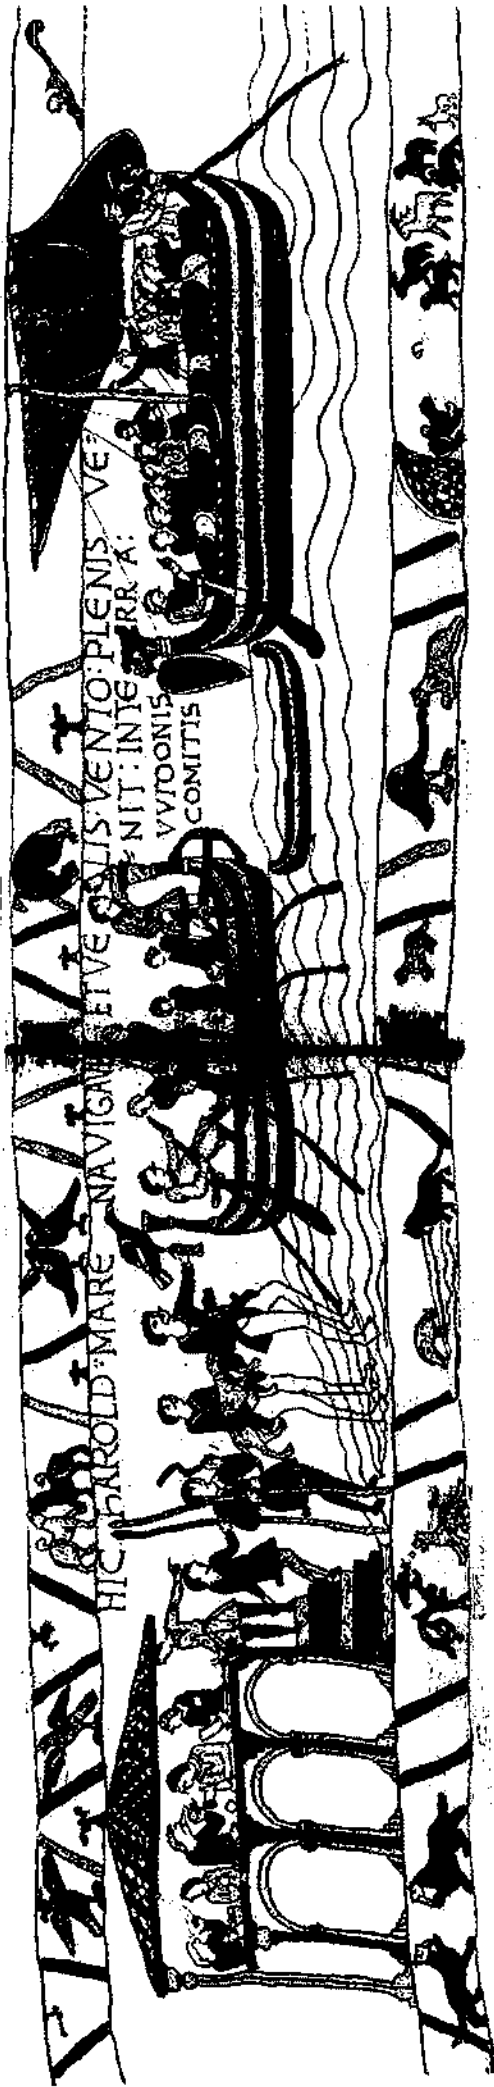 HIC HAROLD:MARE NAVIGA ETVELIS:VENTO:PLENIS VE:
NIT:INTERRA:
VVIDONIS
COMITIS